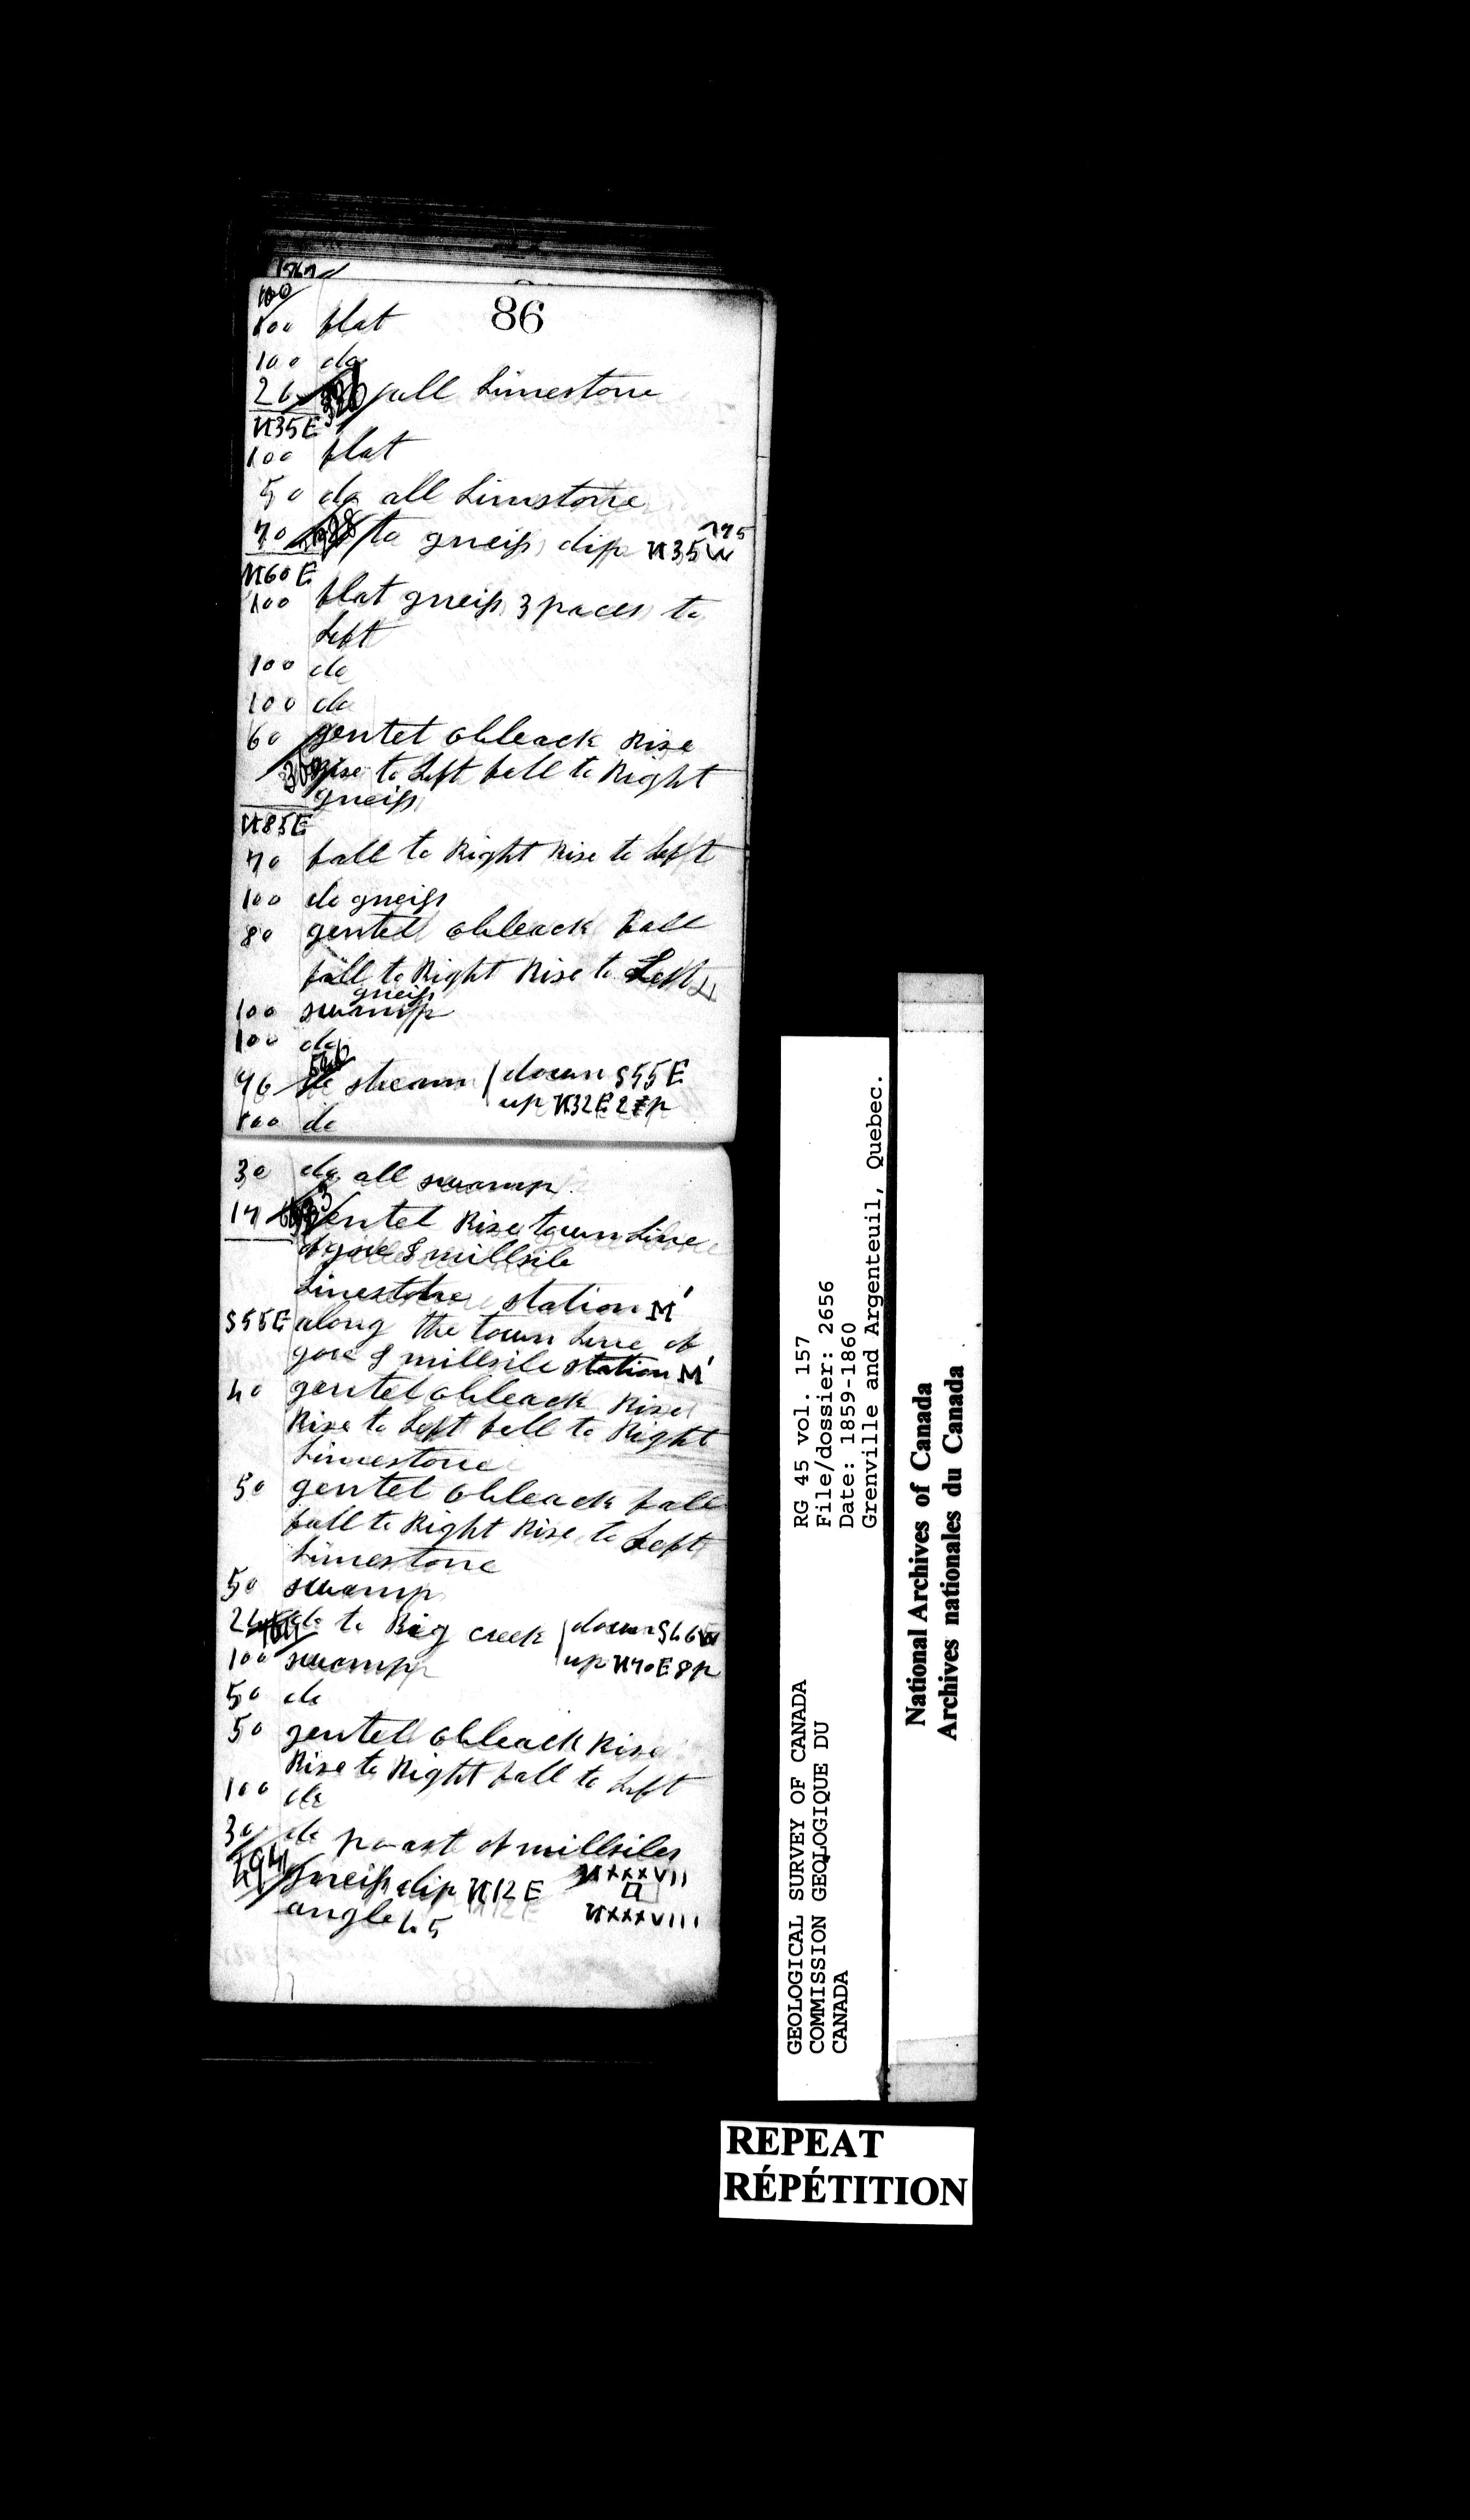 86
100
100 flat
100 do
26 326 all Limestone
N35E
100 flat
50 do all Limstone
70 to gneiss dip N35W 775
N60E
100 flat gneiss 3 paces to
Left
100 do
100 do
60 gentel obleack Rise
360 Rise to Left fall to Right
gneiss
N85E
70 fall to Right Rise to Left
100 do gneiss
80 gentel obleack fall
fall to Right Rise to Left
gneiss
100 swamp
100 do
546
96 to stream down S55E
up N32E 2 p
100 do
30 do all swamp
17 693 gentel Rise town Line
of gore & millsile
Limestone station M'
S55E along the town Line of
gore & millsile station M'
40 gentel obleack Rise
Rise to Left fall to Right
Limestone
50 gentel obleack fall
fall to Right Rise to Left
Limestone
50 swamp
24 164 do to Big creek down S46W
100 swamp up N70E 8p
50 do
50 gentel obleack Rise
Rise to Right fall to Left
100 do
30 do poast of millsiles
494 gneiss dip N12E NXXXVII
angle 45 NXXXVIII
RG 45 vol. 157
File/dossier: 2656
Date: 1859-1860
Grenville and Argenteuil, Quebec.
GEOLOGICAL SURVEY OF CANADA
COMMISSION GEOLOGIQUE DU
CANADA
National Archives of Canada
Archives nationales du Canada
REPEAT
RÉPÉTITION